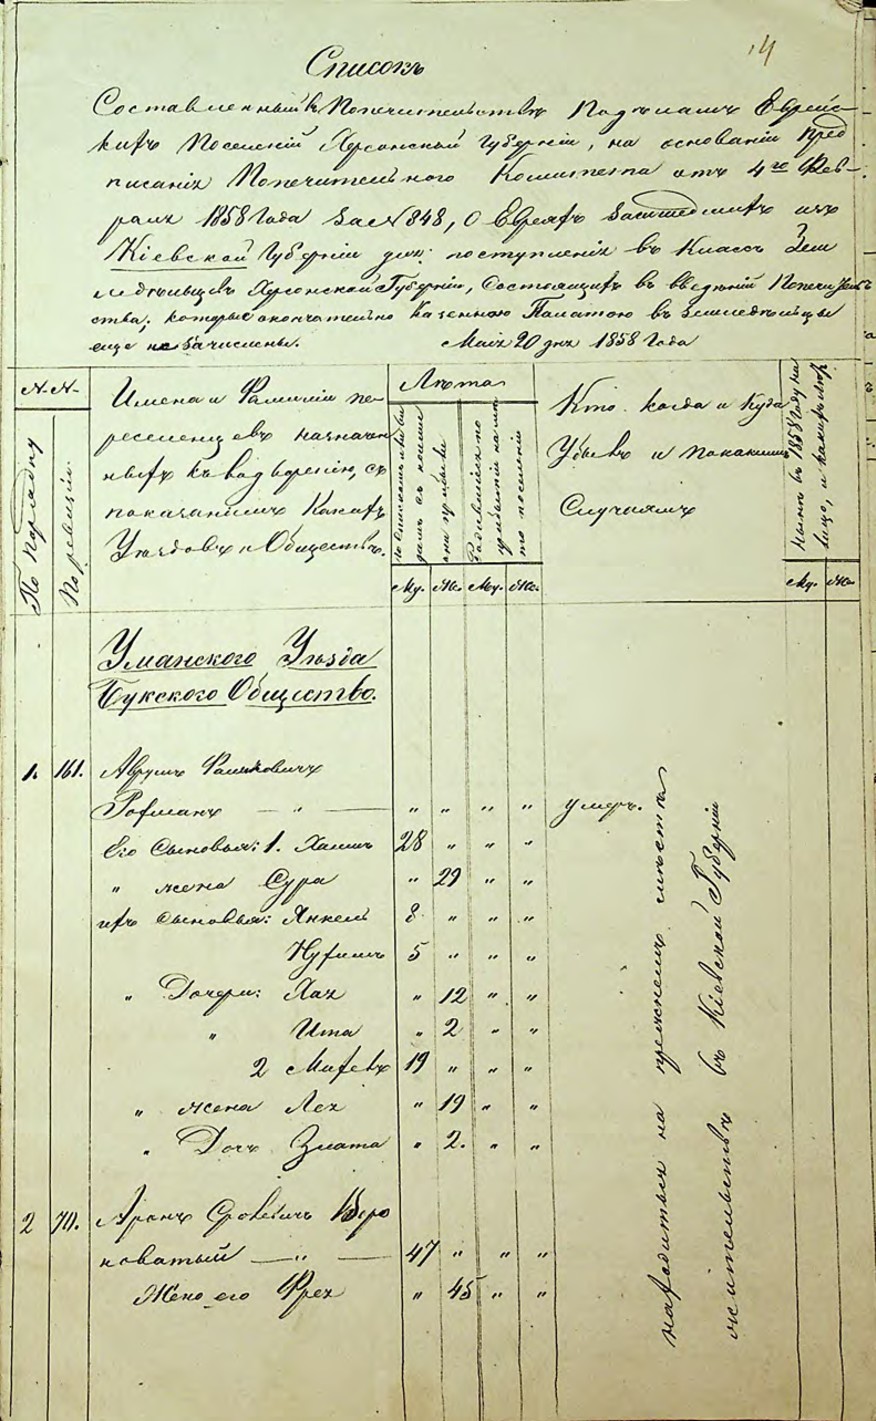 14
Списокъ
Составленный въ Попечительствѣ Надъ нами Еврейс-
кихъ Поселеній Херсонской Губерніи, на основаніи Пред
писанія Попечительнаго Комитета отъ 4го Фев-
раля 1858 Года За № 848, О Евреяхъ Зашедшихъ изъ
Кіевской Губерніи для поступленія въ Классъ Зем
ледѣльцевъ Херсонской Губерніи, Состоящихъ въ вѣденіи Попечитель
ства, которые окончательно Казенною Палатою въ Земледѣльцы
еще не Зачислены. Маія 20 дня 1858 Года
№ №
По порядку
По ревизіи
Имена и Фамиліи пе-
реселенцевъ назначен
ныхъ къ водворенію, съ
показаніемъ Какихъ
Уѣздовъ и Обществъ.
Лѣта
они прибыли
Родившіеся по
прибытіи на мѣ
то поселенія
Кто, когда и Куда
Убылъ и по какимъ
Случаямъ
Нынѣ въ 1858 Году на
лицо, и какихъ лѣтъ
Му. Же. Му. Же. Му. Же.
Уманского Уѣзда
Букского Общество.
1. 161. Аврумъ Фаликовичъ
Рофманъ — " — " " " " умеръ.
Его Сыновья: 1. Хаимъ 28 " " "
" жена Сура " 29 " "
ихъ Сыновья: Янкель 8 " " "
Нухимъ 5 " " "
" Дочери: Хая " 12 " "
" Ита " 2 " "
2 19 " " "
" жена Лея " 19 " "
" Дочь Злата " 2. " "
2 70. Аронъ Сролевичъ Веро
новатый — " — 47 " " "
Жена его Фрея " 45 " "
находится на прежнемъ мѣстѣ
жительствѣ въ Кіевской Губерніи